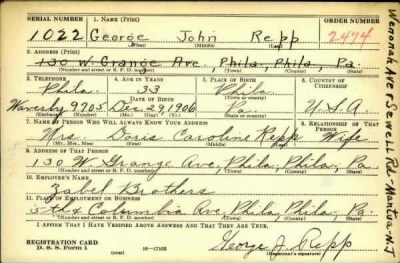 SERIAL NUMBER 1. NAME (Print) ORDER NUMBER
1022 George John Repp 2474
(First) (Middle) (Last)
2. ADDRESS (Print)
130 W. Grange Ave. Phila., Phila., Pa.
(Number and street or R. F. D. number) (Town) (County) (State)
3. TELEPHONE 4. AGE IN YEARS 5. PLACE OF BIRTH 6. COUNTRY OF CITIZENSHIP
Phila. 33 Phila.
DATE OF BIRTH (Town or county)
Waverly 9705 Dec 29, 1906 Pa. U.S.A
(Exchange) (Number) (Mo.) (Day) (Yr.) (State or country)
7. NAME OF PERSON WHO WILL ALWAYS KNOW YOUR ADDRESS 8. RELATIONSHIP OF THAT PERSON
Mrs. Doris Caroline Repp Wife
(Mr., Mrs., Miss) (First) (Middle) (Last)
9. ADDRESS OF THAT PERSON
130 W. Grange Ave, Phila, Phila, Pa.
(Number and street or R. F. D. number) (Town) (County) (State)
10. EMPLOYER'S NAME
Zabel Brothers
11. PLACE OF EMPLOYMENT OR BUSINESS
5th & Columbia Ave, Phila, Phila, Pa.
(Number and street or R. F. D. number) (Town) (County) (State)
I AFFIRM THAT I HAVE VERIFIED ABOVE ANSWERS AND THAT THEY ARE TRUE.
REGISTRATION CARD
D. S. S. Form 1 (over) 16—17105 George J. Repp
(Registrant's signature)
Wenonah Ave & Sewell Rd Mantua N.J